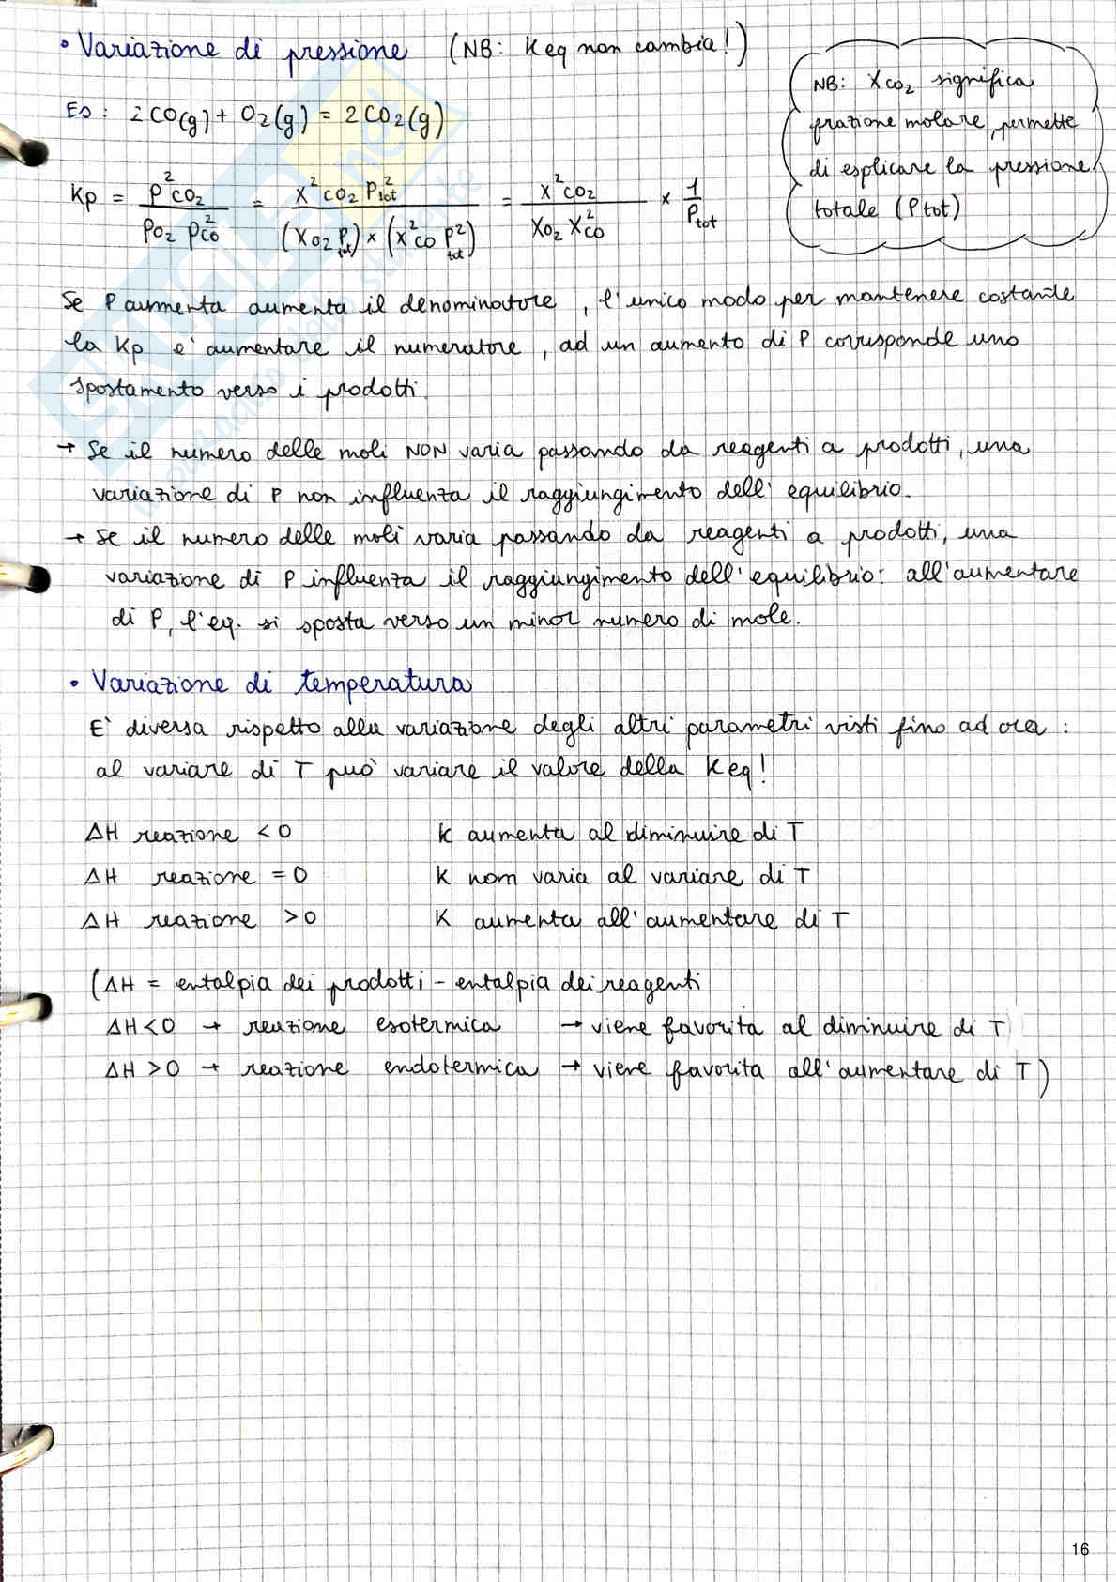 • Variazione di pressione (NB: Keq non cambia!)
NB: Xco2 significa
frazione molare, permette
di esplicare la pressione
totale (Ptot)
Es: 2CO(g) + O2(g) = 2CO2(g)
Kp = p²co2 / po2 p²co = x²co2 P²tot / (xo2 Ptot) × (x²co P²tot) = x²co2 / xo2 x²co × 1/Ptot
Se P aumenta aumenta il denominatore, l'unico modo per mantenere costante
la Kp e' aumentare il numeratore, ad un aumento di P corrisponde uno
spostamento verso i prodotti.
→ Se il numero delle moli NON varia passando da reagenti a prodotti, una
variazione di P non influenza il raggiungimento dell'equilibrio.
→ Se il numero delle moli varia passando da reagenti a prodotti, una
variazione di P influenza il raggiungimento dell'equilibrio: all'aumentare
di P, l'eq. si sposta verso un minor numero di mole.
• Variazione di temperatura
E' diversa rispetto alla variazione degli altri parametri visti fino ad ora:
al variare di T può variare il valore della Keq!
ΔH reazione < 0 K aumenta al diminuire di T
ΔH reazione = 0 K non varia al variare di T
ΔH reazione > 0 K aumenta all'aumentare di T
(ΔH = entalpia dei prodotti - entalpia dei reagenti
ΔH < 0 → reazione esotermica → viene favorita al diminuire di T
ΔH > 0 → reazione endotermica → viene favorita all'aumentare di T)
16